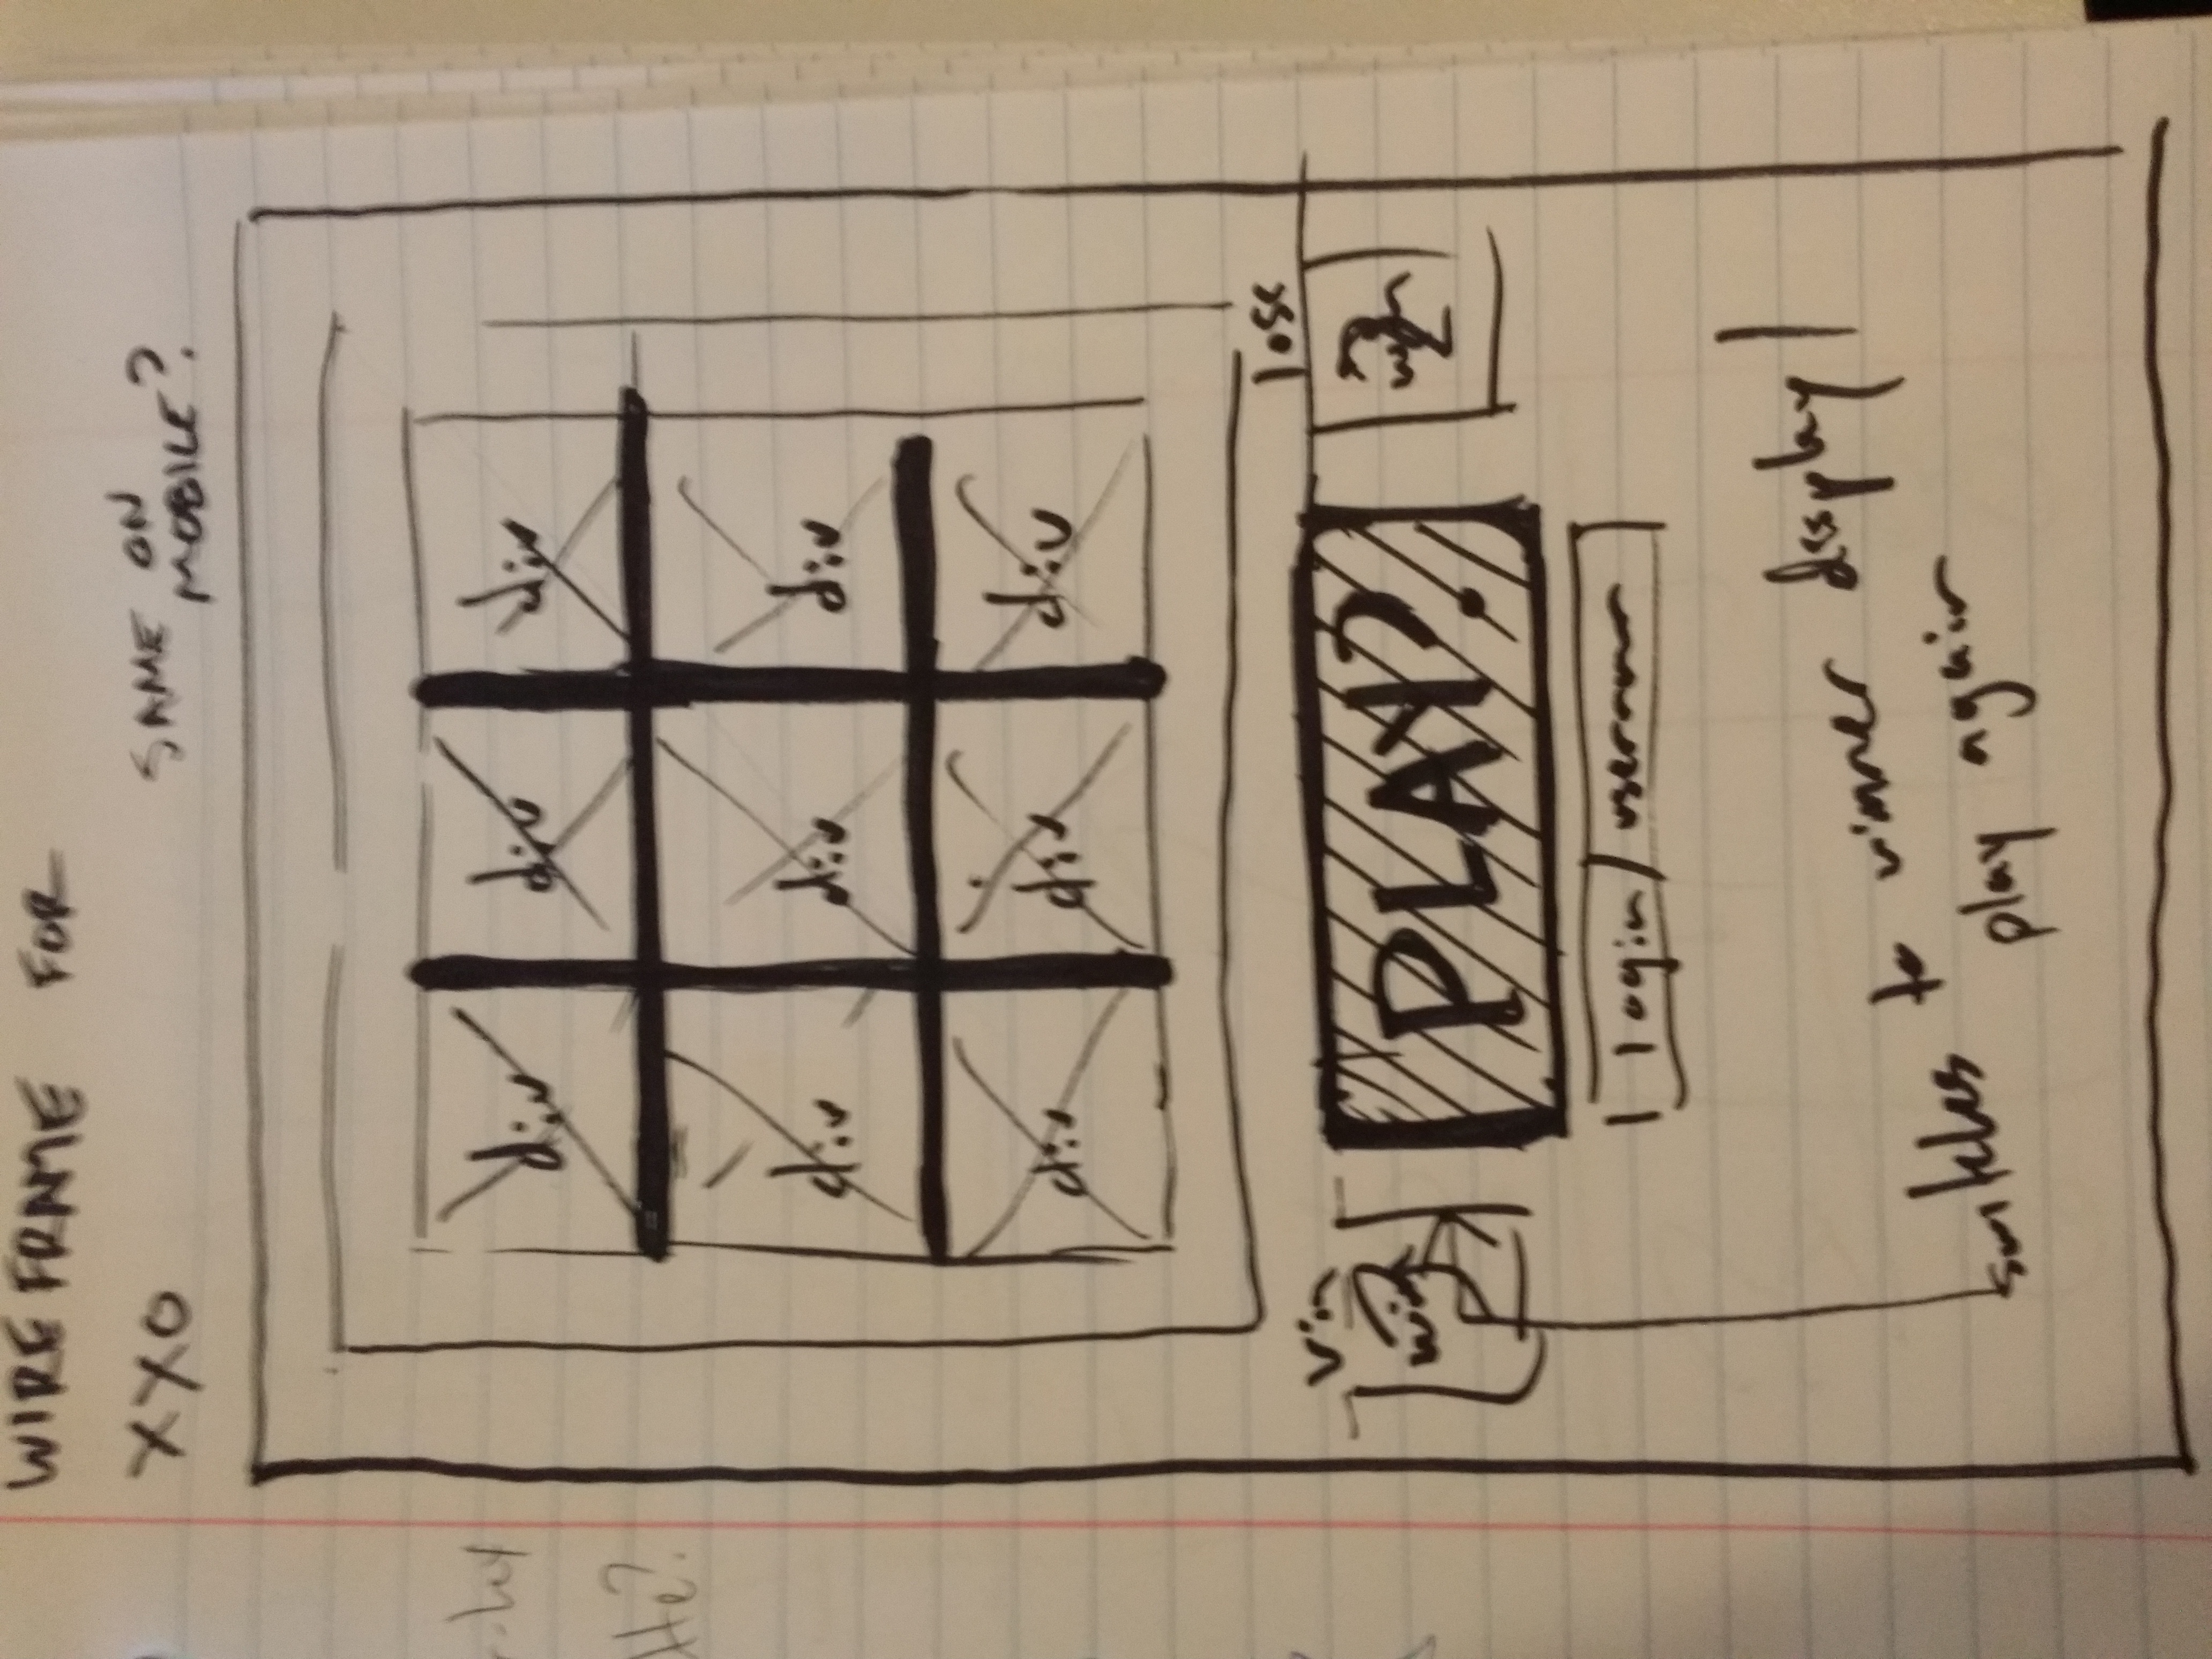 WIREFRAME FOR
XXO
SAME ON
MOBILE?
div div div
div div div
div div div
loss
win
PLAY?
win
2
login/
switches to winner display/
play again